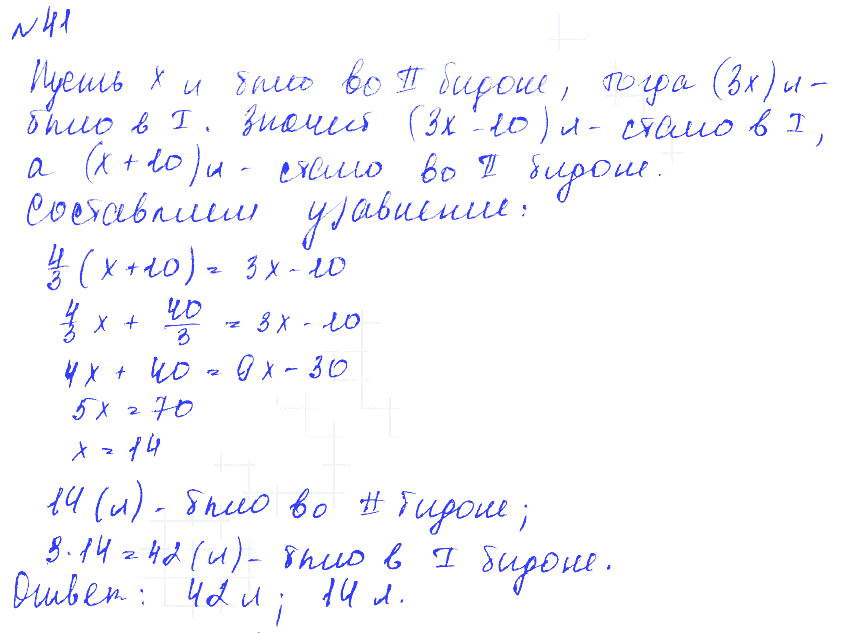 № 41
Пусть x л было во II бидоне, тогда (3x) л -
было в I. Значит (3x - 10) л - стало в I,
а (x + 10) л - стало во II бидоне.
Составляем уравнение:
4/3 (x + 10) = 3x - 10
4/3 x + 40/3 = 3x - 10
4x + 40 = 9x - 30
5x = 70
x = 14
14 (л) - было во II бидоне;
3 · 14 = 42 (л) - было в I бидоне.
Ответ: 42 л; 14 л.